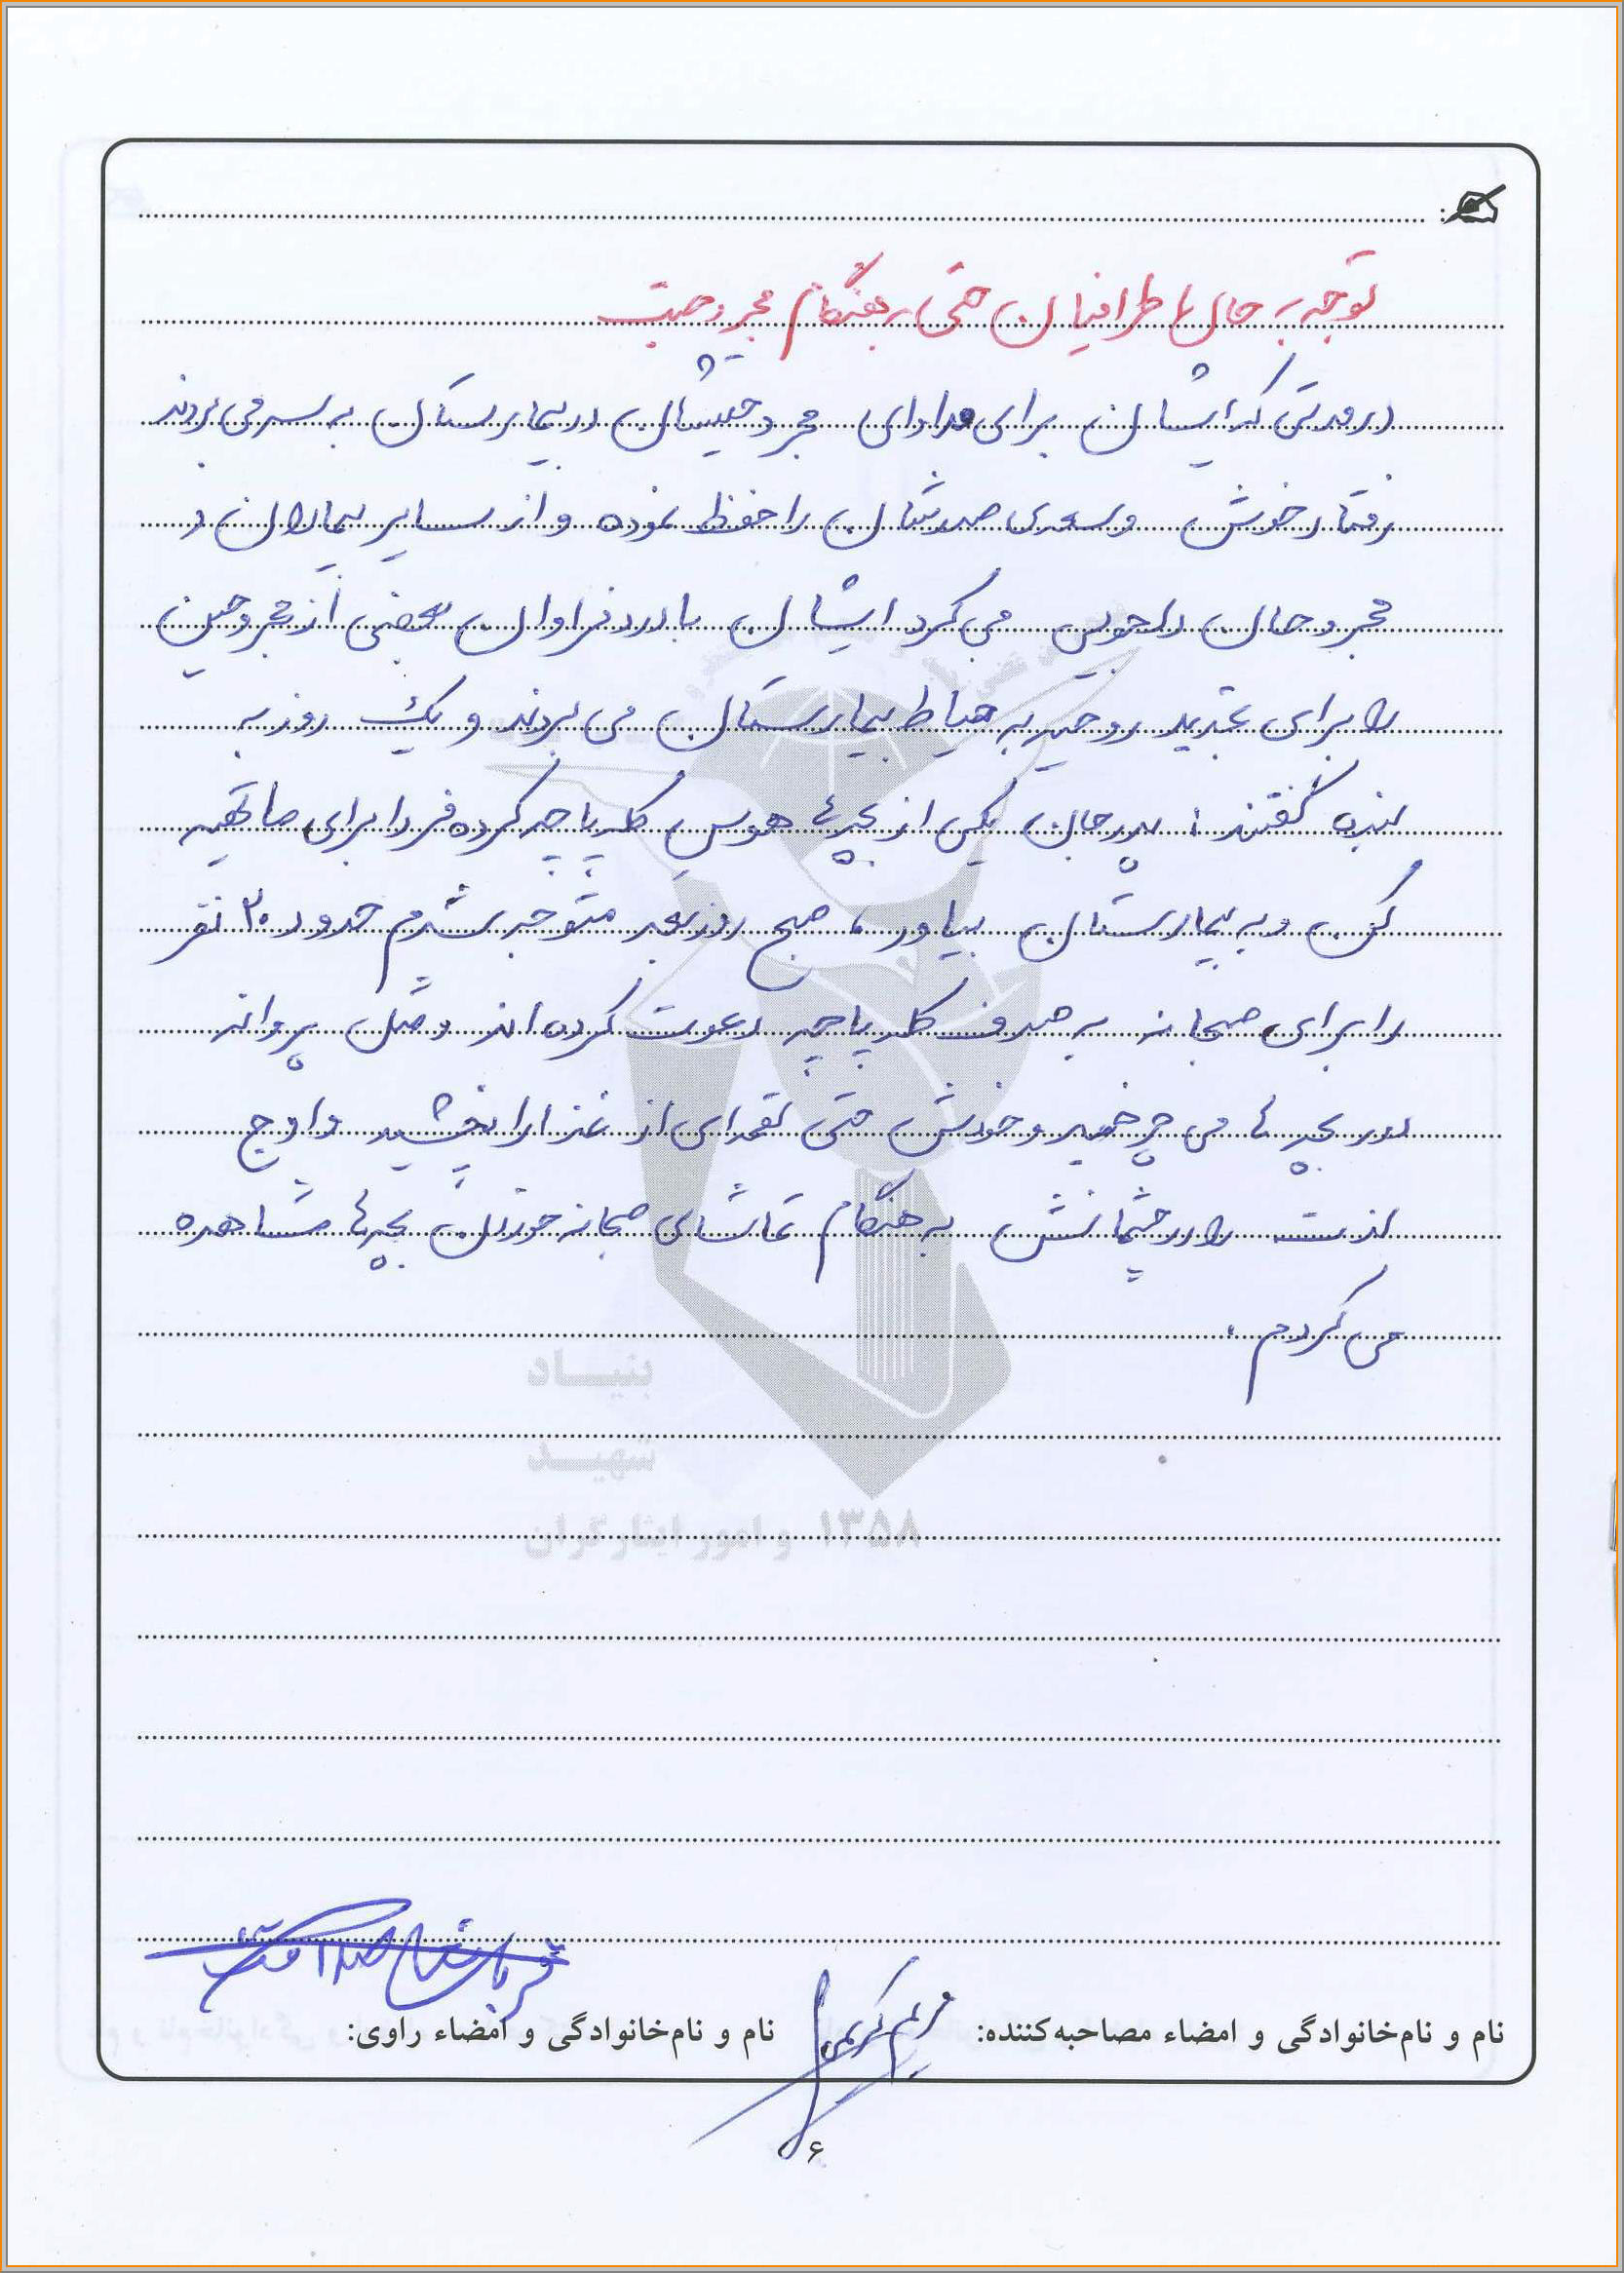 توجه به حال اطرافیان حتی به هنگام مجروحیت
در مدتی که ایشان برای مداوای مجروحیتشان در بیمارستان به سر می بردند
رفتار خوش و سعه‌ی صدرشان را حفظ نموده و از سایر بیماران و
مجروحان دلجویی می کرد ایشان با درد فراوان بعضی از مجروحین
را برای تجدید روحیه به حیاط بیمارستان می بردند و یک روز به
بنده گفتند: پدرجان یکی از بچه ها هوس کله پاچه کرده فردا برای ما تهیه
کن و به بیمارستان بیاور، صبح روز بعد متوجه شدم حدود ۲۰ نفر
را برای صبحانه به صرف کله پاچه دعوت کرده اند و مثل پروانه
دور بچه ها می چرخید و خودش حتی لقمه ای از غذا را نچشید و اوج
لذت را در چشمانش به هنگام تماشای صبحانه خوردن بچه ها مشاهده
می کردم.
بنیاد
شهید
و امور ایثارگران ۱۳۵۸
نام و نام‌خانوادگی و امضاء مصاحبه‌کننده: مریم کریمی نام و نام‌خانوادگی و امضاء راوی:
۶